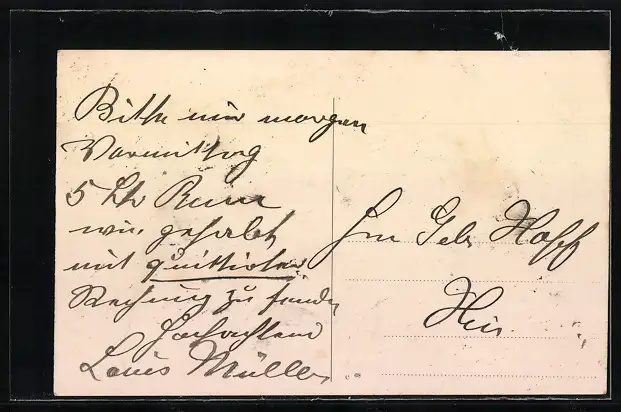 Bitte mir morgen
Vormittag
5 Ltr Rum
wie gehabt
mit quittirter
Rechnung zu senden
Hochachtend
Louis Müller
Hrn Gebr Hoff
Hier.